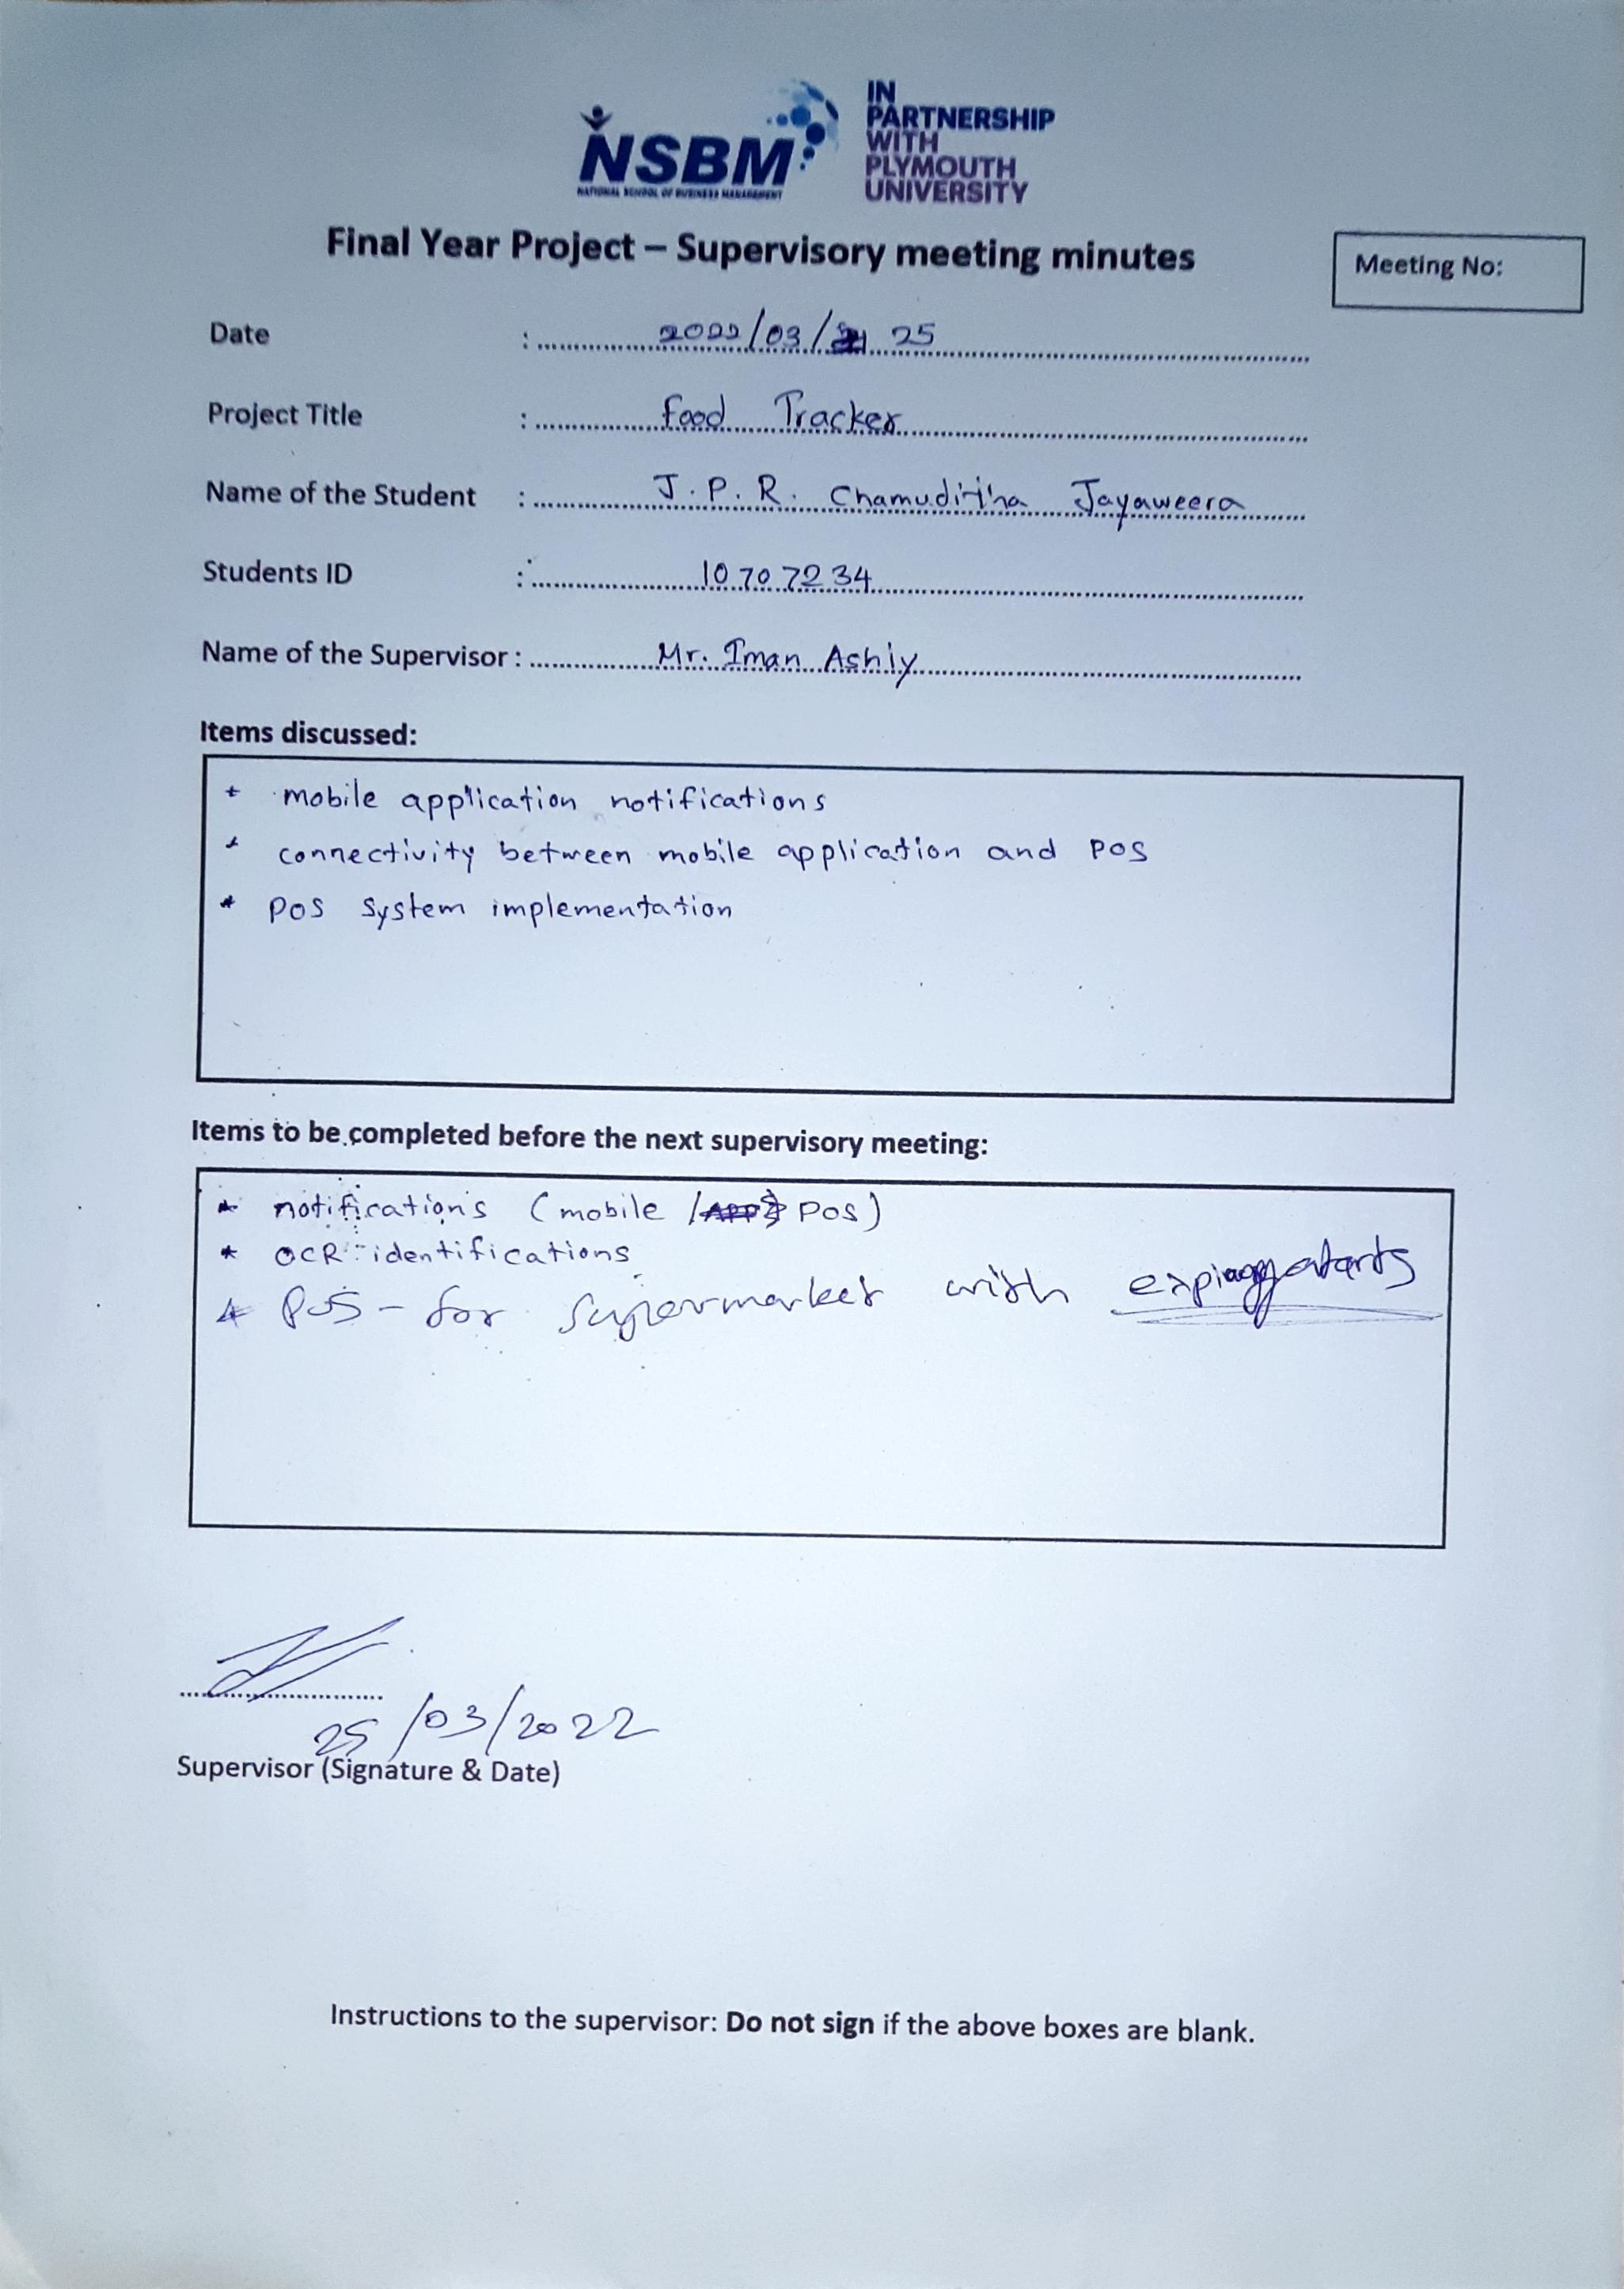 NSBM
NATIONAL SCHOOL OF BUSINESS MANAGEMENT
IN
PARTNERSHIP
WITH
PLYMOUTH
UNIVERSITY
Final Year Project – Supervisory meeting minutes
Meeting No:
Date : 2022/03/ 25
Project Title : Food Tracker
Name of the Student : J.P.R. Chamuditha Jayaweera
Students ID : 10707234
Name of the Supervisor : Mr. Iman Ashiy
Items discussed:
* mobile application notifications
* connectivity between mobile application and POS
* POS system implementation
Items to be completed before the next supervisory meeting:
* notifications (mobile / POS)
* OCR identifications
* POS - for supermarket with
25/03/2022
Supervisor (Signature & Date)
Instructions to the supervisor: Do not sign if the above boxes are blank.